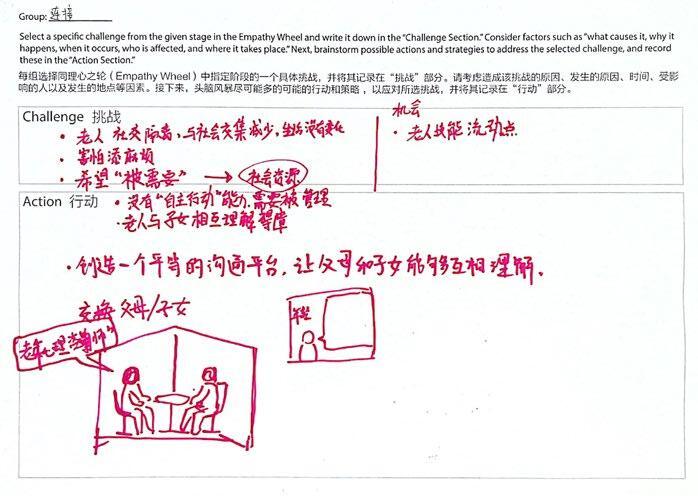 Group: 连接
Select a specific challenge from the given stage in the Empathy Wheel and write it down in the "Challenge Section." Consider factors such as "what causes it, why it
happens, when it occurs, who is affected, and where it takes place." Next, brainstorm possible actions and strategies to address the selected challenge, and record
these in the "Action Section."
每组选择同理心之轮（Empathy Wheel）中指定阶段的一个具体挑战，并将其记录在“挑战”部分。请考虑造成该挑战的原因、发生的原因、时间、受影
响的人以及发生的地点等因素。接下来，头脑风暴尽可能多的可能的行动和策略，以应对所选挑战，并将其记录在“行动”部分。
Challenge 挑战
· 老人 社交隔离，与社会交集减少，生活没有变化
· 害怕添麻烦
· 希望“被需要” → 社会资源
机会
· 老人技能 流动点
Action 行动
· 没有“自主行动”能力，需要被管理
· 老人与子女相互理解障碍
· 创造一个平等的沟通平台，让父母和子女能够互相理解。
交换 父母/子女
“老年心理咨询师”
年轻